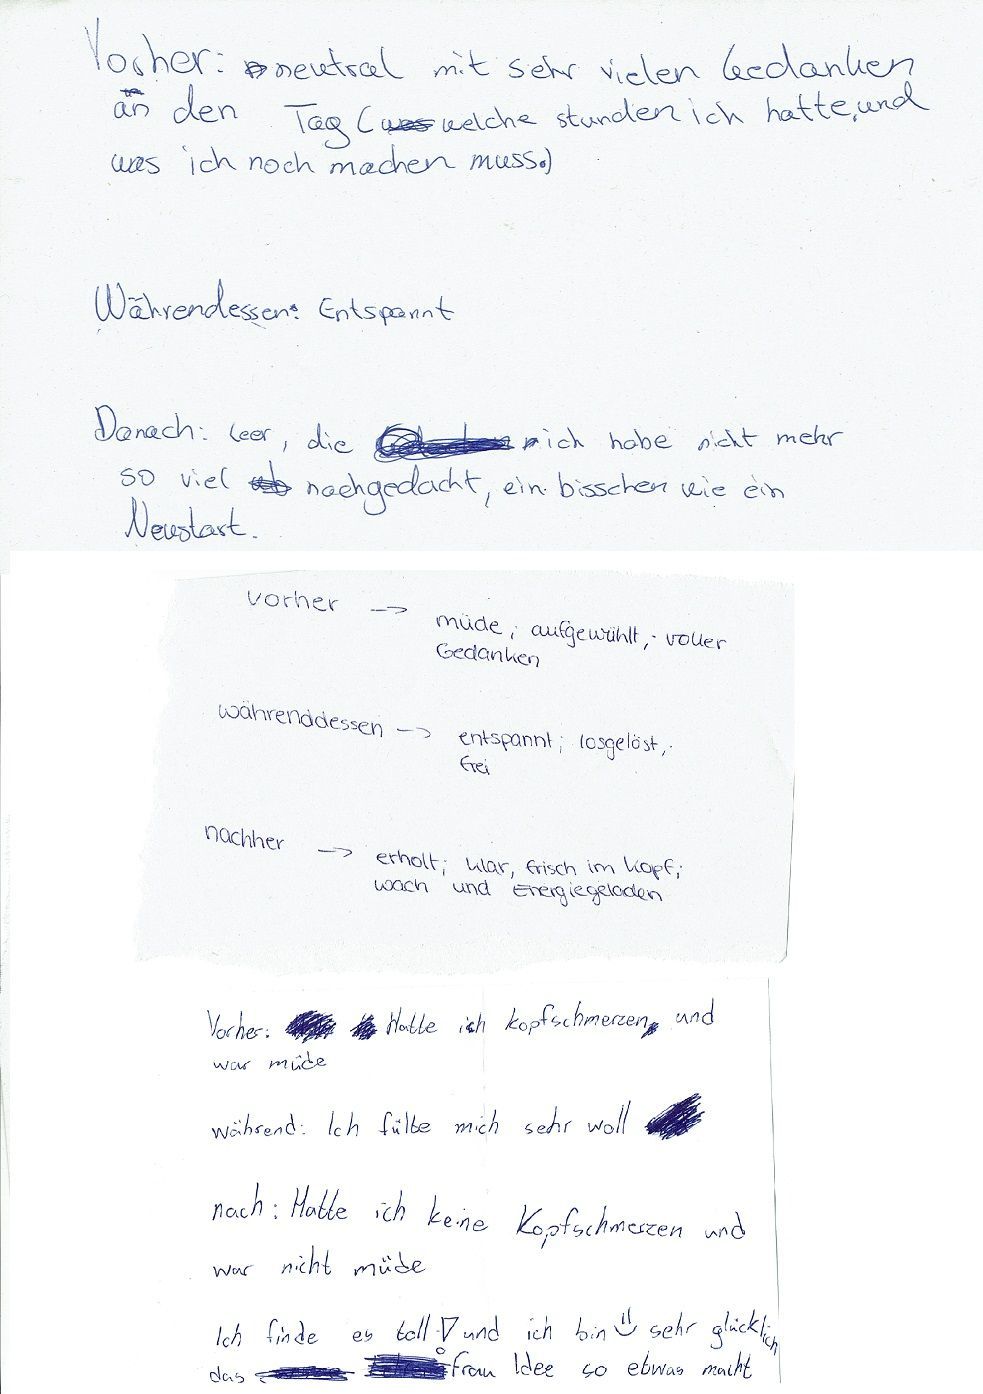 Vorher: neutral mit sehr vielen Gedanken
an den Tag (was welche stunden ich hatte, und
was ich noch machen muss.)
Währendessen: Entspannt
Danach: Leer, die ich habe nicht mehr
so viel nachgedacht, ein bisschen wie ein
Neustart.
vorher → müde; aufgewühlt; voller
Gedanken
währenddessen → entspannt; losgelöst;
frei
nachher → erholt; klar, frisch im Kopf;
wach und Energiegeladen
Vorher: Hatte ich Kopfschmerzen, und
war müde
während: Ich fülte mich sehr woll
nach: Hatte ich keine Kopfschmerzen und
war nicht müde
Ich finde es toll! und ich bin sehr glücklich
das Frau Idee so etwas macht